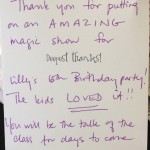 Thank you for putting
on an AMAZING
magic show for
Deepest thanks!
Lilly's 6th Birthday party!
The kids LOVED it!!
You will be the talk of the
class for days to come